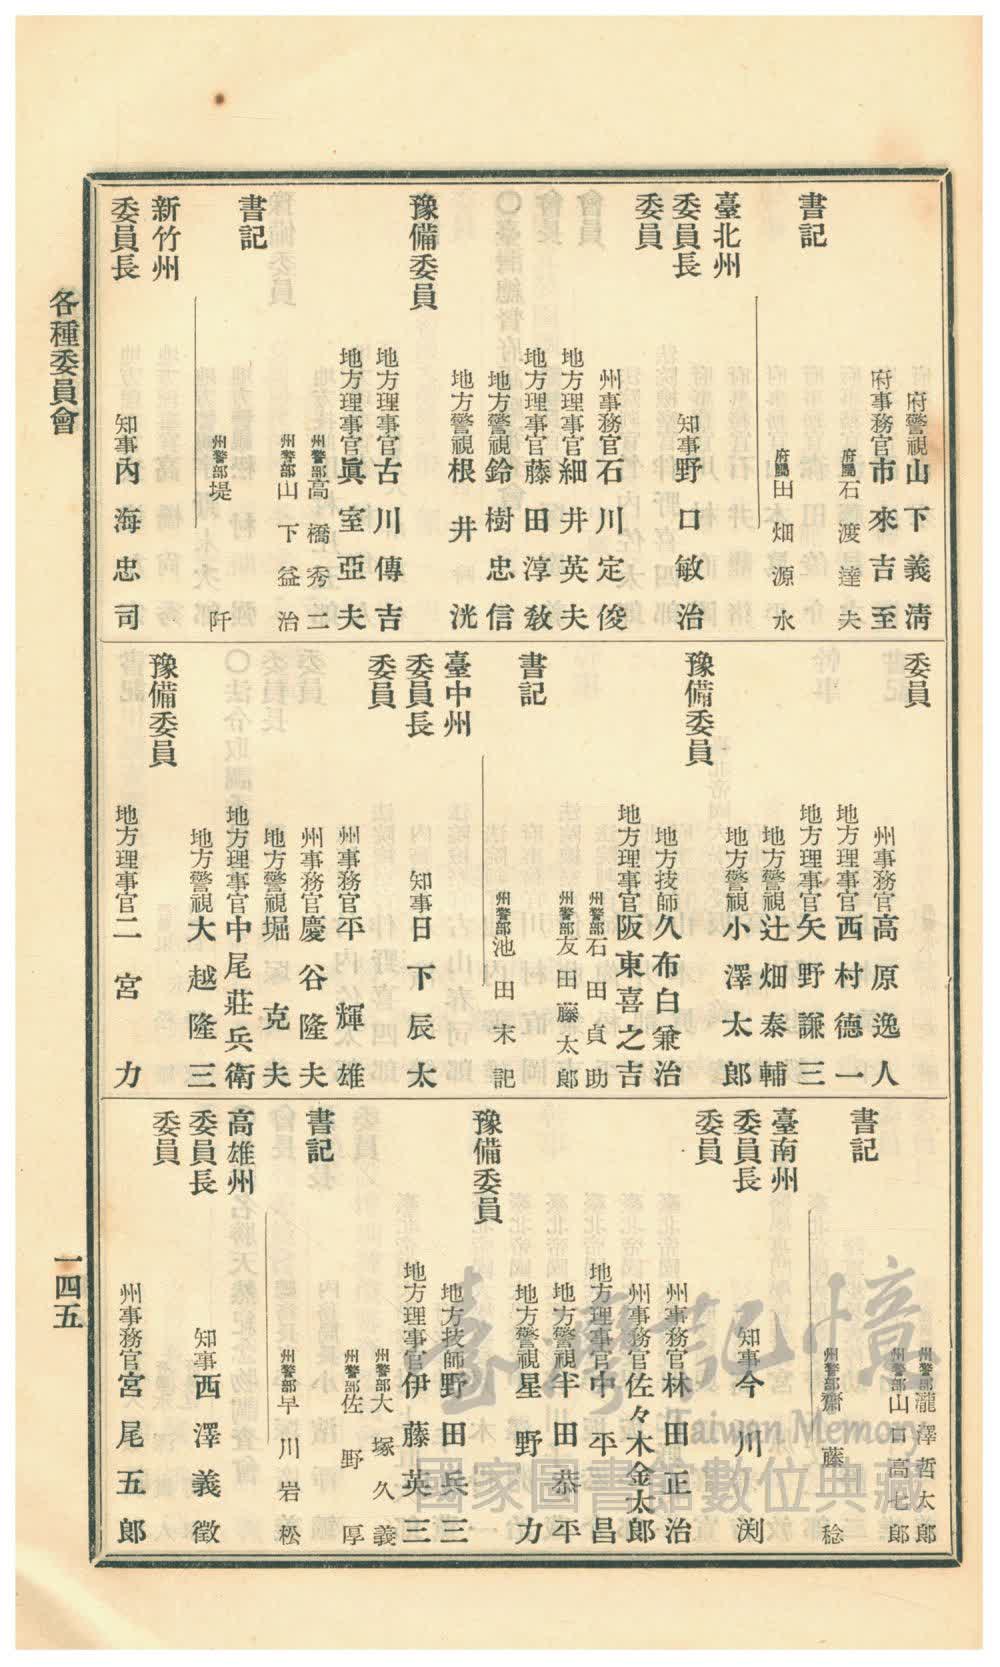 府警視山下義淸
府事務官市來吉至
書記
府屬石渡達夫
府屬田畑源水
臺北州
委員長
知事野口敏治
委員
州事務官石川定俊
地方理事官細井英夫
地方理事官藤田淳敎
地方警視鈴樹忠信
地方警視根井洸
豫備委員
地方理事官古川傳吉
地方理事官眞室亞夫
書記
州警部高橋秀二
州警部山下益治
州警部堤阡
新竹州
委員長
知事內海忠司
委員
州事務官高原逸人
地方理事官西村德一
地方理事官矢野謙三
地方警視辻畑泰輔
地方警視小澤太郎
豫備委員
地方技師久布白兼治
地方理事官阪東喜之吉
書記
州警部石田貞助
州警部友田藤太郎
州警部池田末記
臺中州
委員長
知事日下辰太
委員
州事務官平輝雄
州事務官慶谷隆夫
地方警視堀克夫
地方理事官中尾莊兵衛
地方警視大越隆三
豫備委員
地方理事官二宮力
書記
州警部瀧澤哲太郎
州警部山口高七郎
州警部齋藤稔
臺南州
委員長
知事今川渕
委員
州事務官林田正治
州事務官佐々木金太郎
地方理事官中平昌
地方警視半田恭平
地方警視星野力
豫備委員
地方技師野田兵三
地方理事官伊藤英三
書記
州警部大塚久義
州警部佐野厚
州警部早川岩松
高雄州
委員長
知事西澤義徵
委員
州事務官宮尾五郎
各種委員會
一四五
臺灣記憶
Taiwan Memory
國家圖書館數位典藏